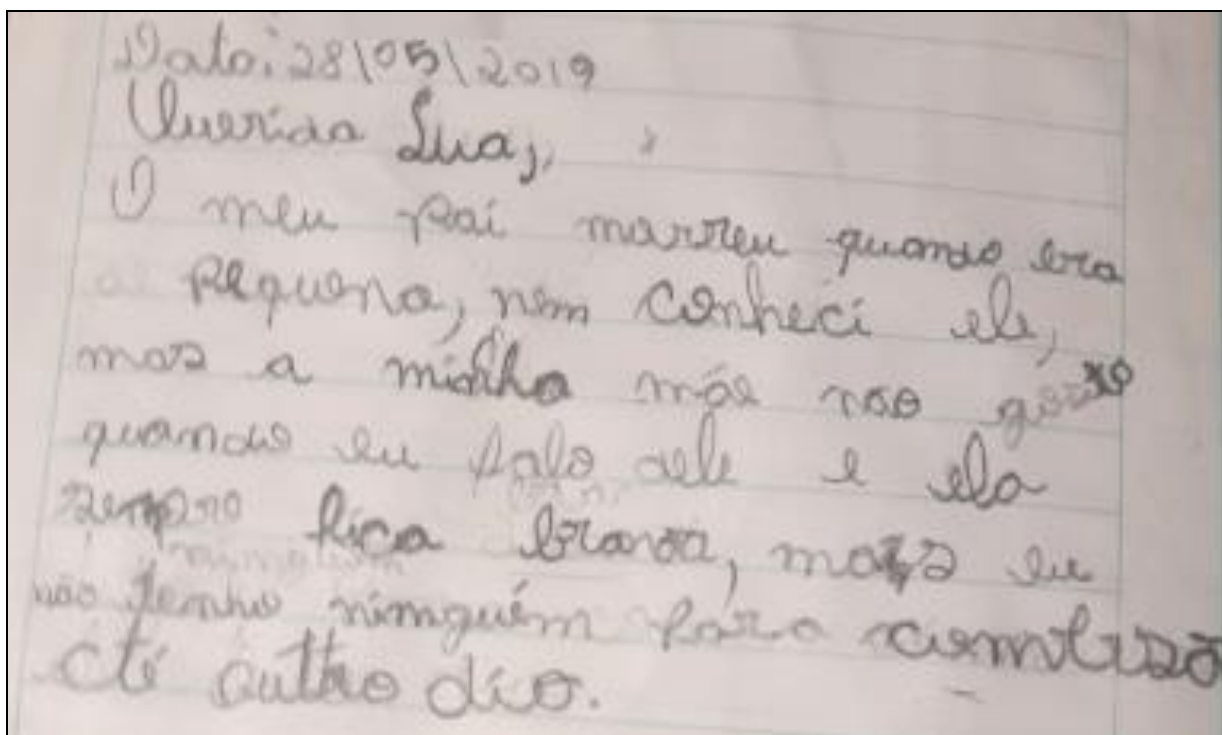 Data: 28\05\2019
Querida Lua,
O meu pai morreu quando era
pequena, nem conheci ele,
mas a minha mãe não gosta
quando eu falo dele e ela
sempre fica brava, mais eu
não tenho nimguém para
até outro dia.